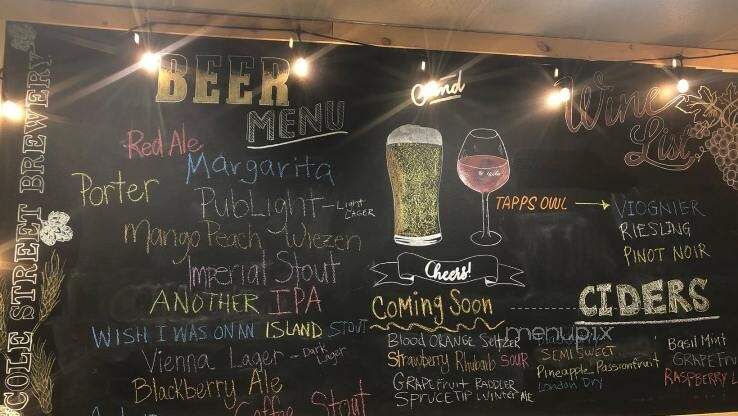 COLE STREET BREWERY
BEER
MENU
Red Ale
Margarita
Porter
PubLight - Light LAGER
Mango Peach Wiezen
Imperial Stout
ANOTHER IPA
WISH I WAS ON AN ISLAND STOUT
Vienna Lager - Dark Lager
Blackberry Ale
Coffee Stout
Cheers!
Coming Soon
Blood ORANGE SeltzER
Strawberry Rhubarb SOUR
GRAPEFruit RADDLER
SPRUCE TIP WINTER ALE
Wine
List
TAPPS OWL
VIOGNIER
RIESLING
PINOT NOIR
CIDERS
menupix
SEMI SWEET
Pineapple Passionfruit
London Dry
Basil Mint
GRAPEFRU
RASPBERRY L